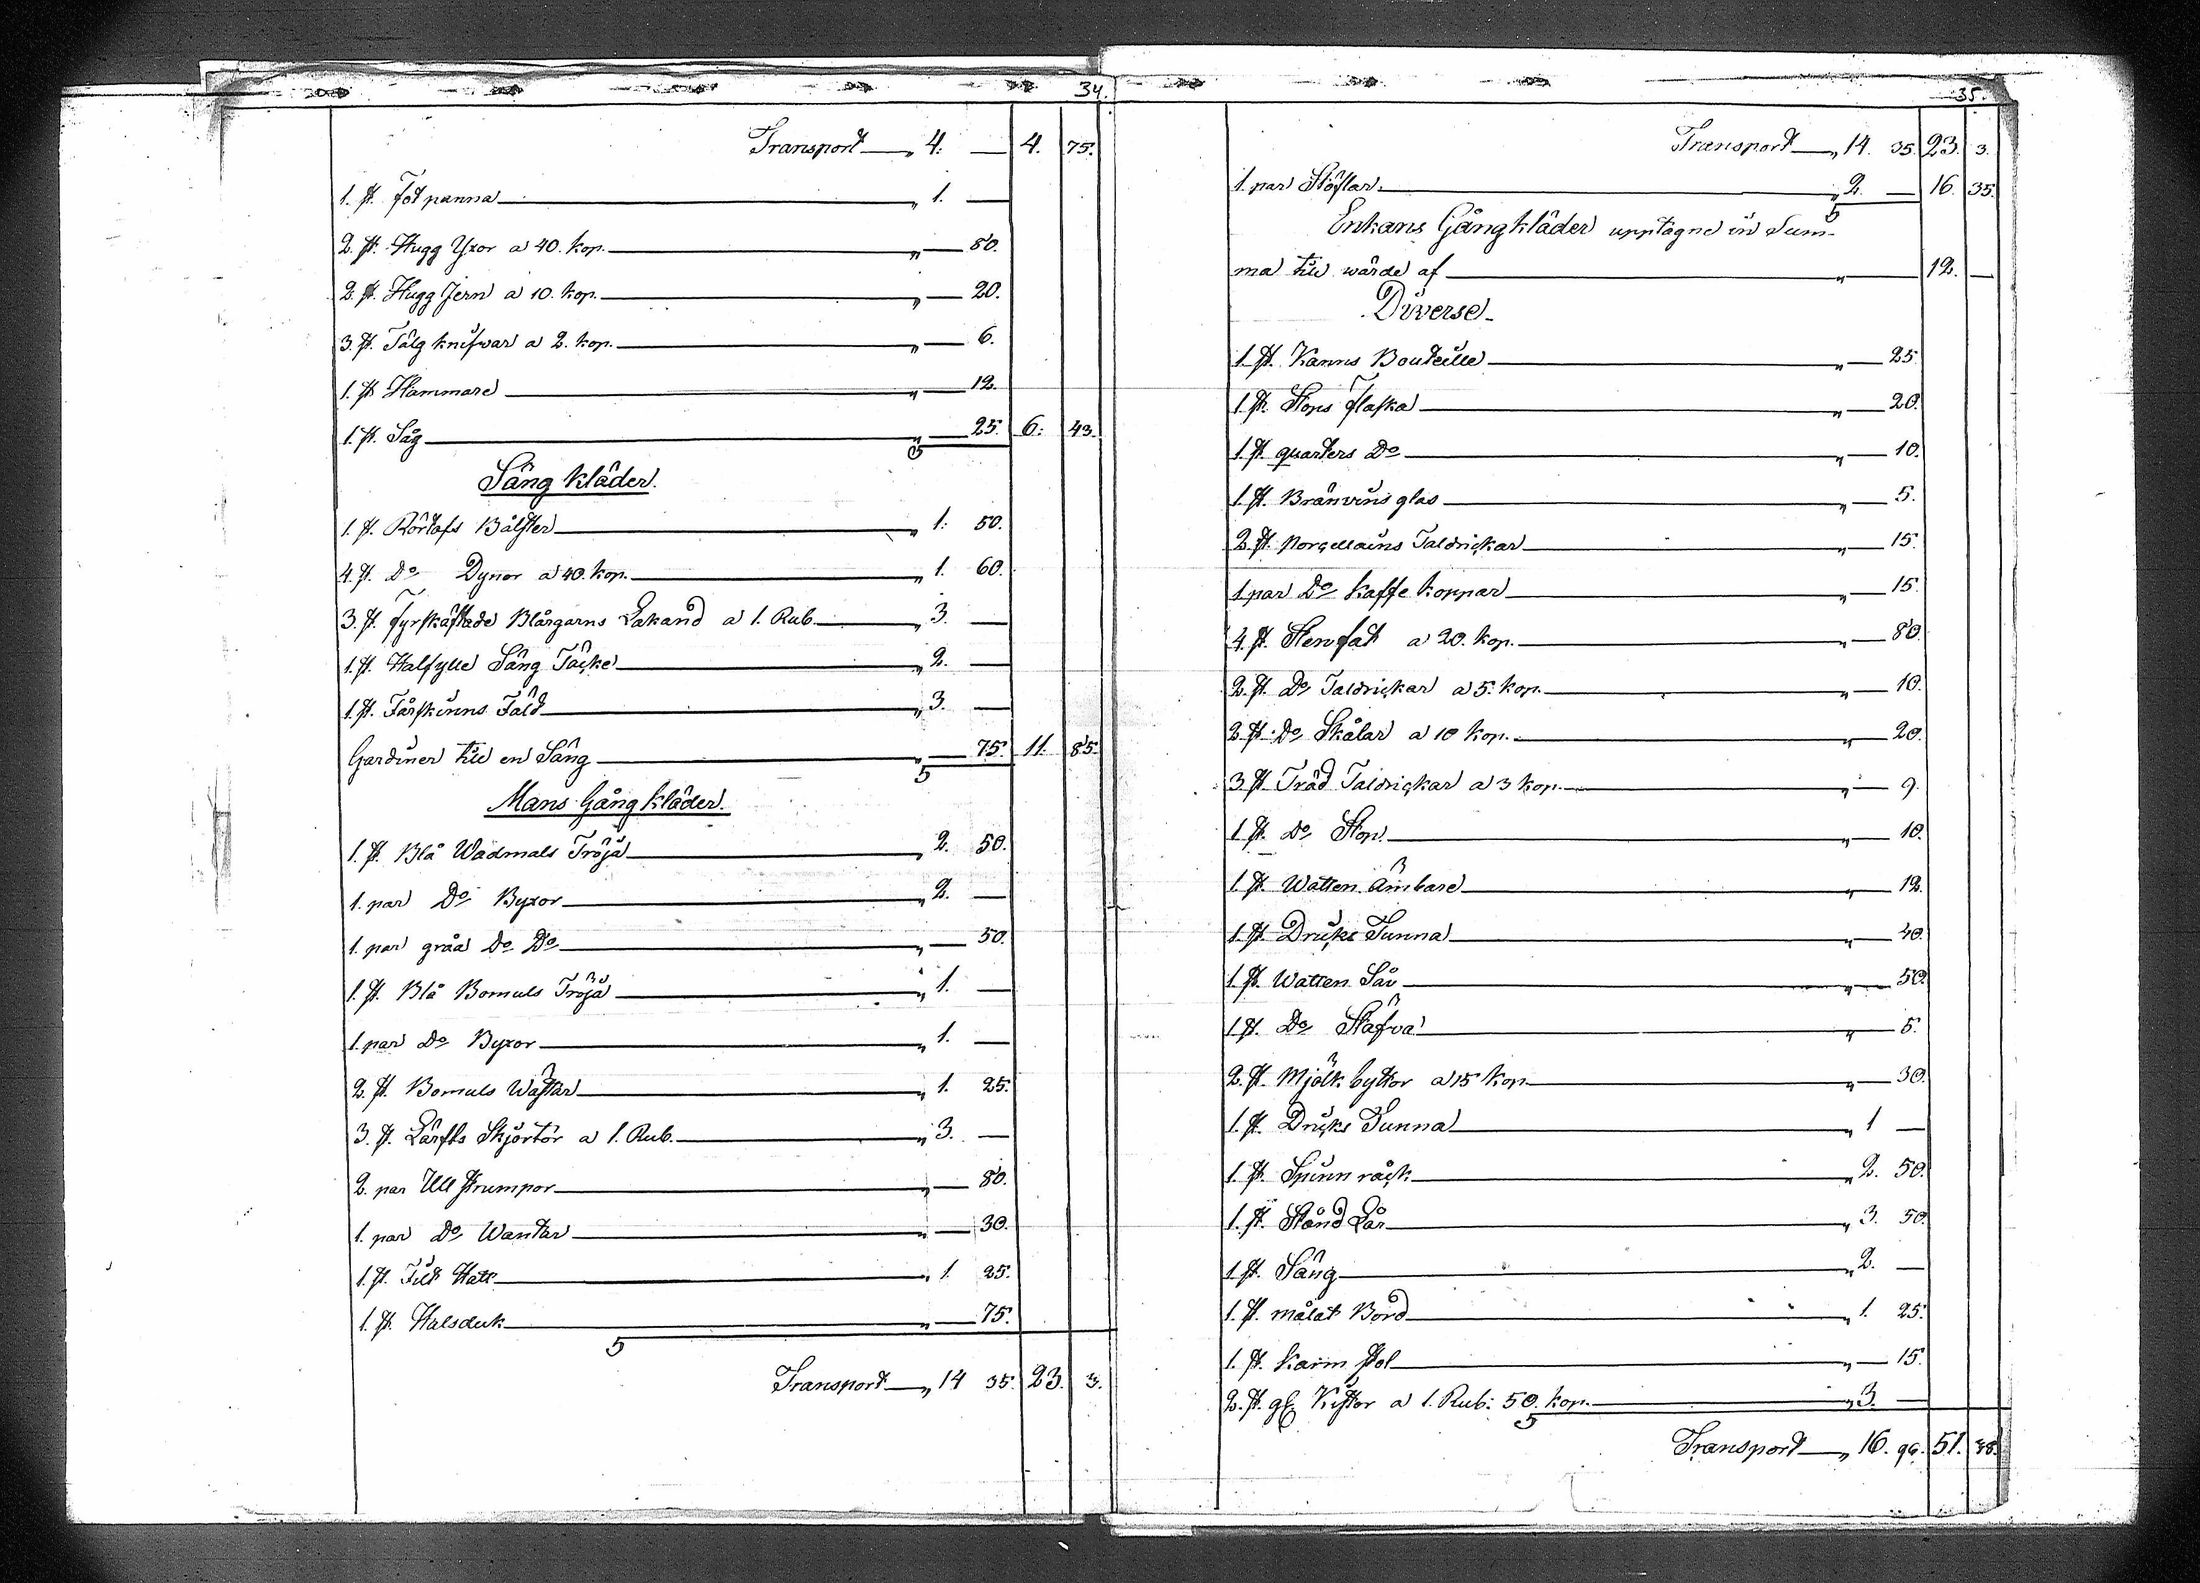 34.
Transport „ 4. — 4. 75.
1. st. Fotpanna „ 1. —
2. st. Hugg Yxor a 40. kop. „ — 80.
2. st. Hugg Jern a 10. kop. „ — 20.
3. st. Tälg knifvar a 2. kop. „ — 6.
1. st. Hammare „ — 12.
1. st. Såg „ — 25. 6. 43.
Säng kläder.
1. st. Bålster „ 1. 50.
4. st. Do Dynor a 40. kop. „ 1. 60.
3. st. fyrskäftade Blårgarns Lakand a 1. Rub. „ 3. —
1. st. Halfylle Säng Täcke „ 2. —
1. st. Fårskinns Fäld „ 3. —
Gardiner till en Säng „ — 75. 11. 85.
Mans Gång kläder.
1. st. Blå Wadmals Tröja „ 2. 50.
1. par Do Byxor „ 2. —
1. par gråa Do Do „ — 50.
1. st. Blå Bomuls Tröja „ 1. —
1. par Do Byxor „ 1. —
2. st. Bomuls Wästar „ 1. 25.
3. st. Lärfts Skjortor a 1. Rub. „ 3. —
2. par Ull strumpor „ — 80.
1. par Do Wantar „ — 30.
1. st. Filt Hatt „ 1. 25.
1. st. Halsduk „ — 75.
Transport „ 14 35. 23. 3.
35.
Transport „ 14. 35. 23. 3.
1. par Stöflar „ 2. — 16. 35.
Enkans Gångkläder upptagne in Sum-
ma till wärde af „ — 12. —
Diverse
1. st. Kanns Bouteille „ — 25
1. st. Stops flaska „ — 20.
1. st. quarters Do „ — 10.
1. st. Bränvins glas „ — 5.
2. st. Porcellains Taldrickar „ — 15.
1 par Do Kaffe koppar „ — 15.
4. st. Stenfat a 20. kop. „ — 80.
2. st. Do Taldrickar a 5. kop. „ — 10.
2. st. Do Skålar a 10 kop. „ — 20.
3. st. Träd Taldrickar a 3 kop. „ — 9.
1. st. Do Stop „ — 10.
1. st. Watten Ämbare „ — 12.
1. st. Dricks Tunna „ — 40.
1. st. Watten Så „ — 50.
1. st. Do Stäfva „ — 5.
2. st. Mjölk byttor a 15 kop. „ — 30.
1. st. Dricks Tunna „ 1 —
1. st. Spinn råck „ 2. 50.
1. st. Stånd Lår „ 3. 50.
1. st. Säng „ 2. —
1. st. målat Bord „ 1. 25.
1. st. Karm stol „ — 15.
2. st. gl. Kistor a 1. Rub: 50. kop. „ 3. —
Transport „ 16. 96. 51. 38.